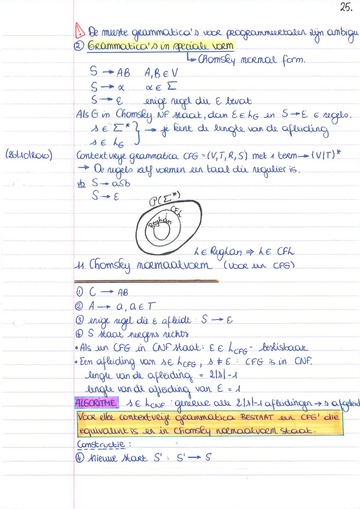 25.
⚠ De meeste grammatica's voor programmeertalen zijn ambigu
② Grammatica's in speciale vorm
↳ Chomsky normal form.
S → AB A,B ∈ V
S → α α ∈ Σ
S → ε enige regel die ε bevat
Als G in Chomsky NF staat, dan ε ∈ L_G in S → ε ∈ regels.
s ∈ Σ* } → je kent de lengte van de afleiding
s ∈ L_G
Contextvrije grammatica CFG = (V, T, R, S) met 1 term → (V|T)*
→ De regels zelf vormen een taal die regulier is.
vb S → aSb
S → ε
P(Σ*)
CFL
RegLan
L ∈ RegLan ⇒ L ∈ CFL
Chomsky normaalvorm (voor een CFG)
① C → AB
② A → a, a ∈ T
③ enige regel die ε afleidt S → ε
④ S staat nergens rechts
• Als een CFG in CNF staat: ε ∈ L_CFG - beslisbaar
• Een afleiding van s ∈ L_CFG, s ≠ ε : CFG is in CNF.
lengte van de afleiding = 2|s|-1
lengte van de afleiding van ε = 1
ALGORITME s ∈ L_CNF : genereer alle 2|s|-1 afleidingen →
Voor elke contextvrije grammatica BESTAAT een CFG' die
equivalent is en in Chomsky normaalvorm staat.
Constructie :
① nieuwe start S' : S' → S